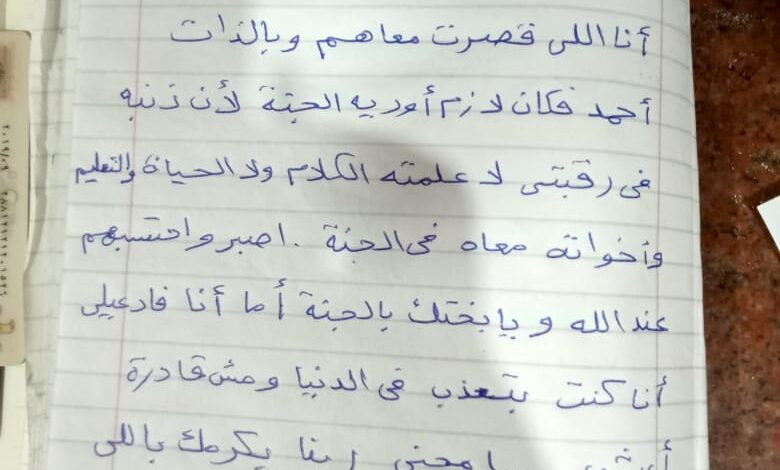 أنا اللى قصرت معاهم وبالذات
أحمد فكان لازم أوديه الجنة لأن ذنبه
فى رقبتى لا علمته الكلام ولا الحياة والتعليم
وأخواته معاه فى الجنة . اصبر واحتسبهم
عند الله ويابختك بالجنة أما أنا فادعيلى
أنا كنت بتعذب فى الدنيا ومش قادرة
ربنا يكرمك باللى